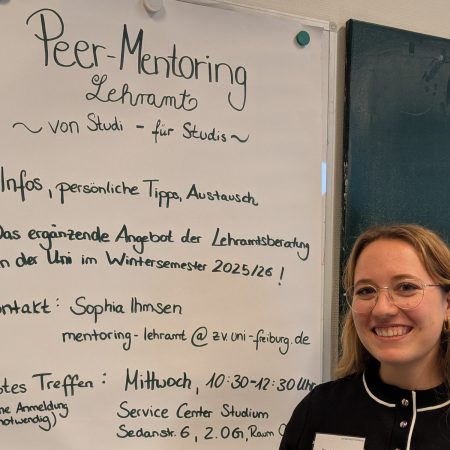 Peer-Mentoring
Lehramt
~ von Studi - für Studis ~
Infos, persönliche Tipps, Austausch
Das ergänzende Angebot der Lehramtsberatung
an der Uni im Wintersemester 2025/26!
Kontakt: Sophia Ihmsen
mentoring-lehramt@zv.uni-freiburg.de
Treffen: Mittwoch, 10:30-12:30 Uhr
Anmeldung Service Center Studium
notwendig) Sedanstr. 6, 2.OG, Raum